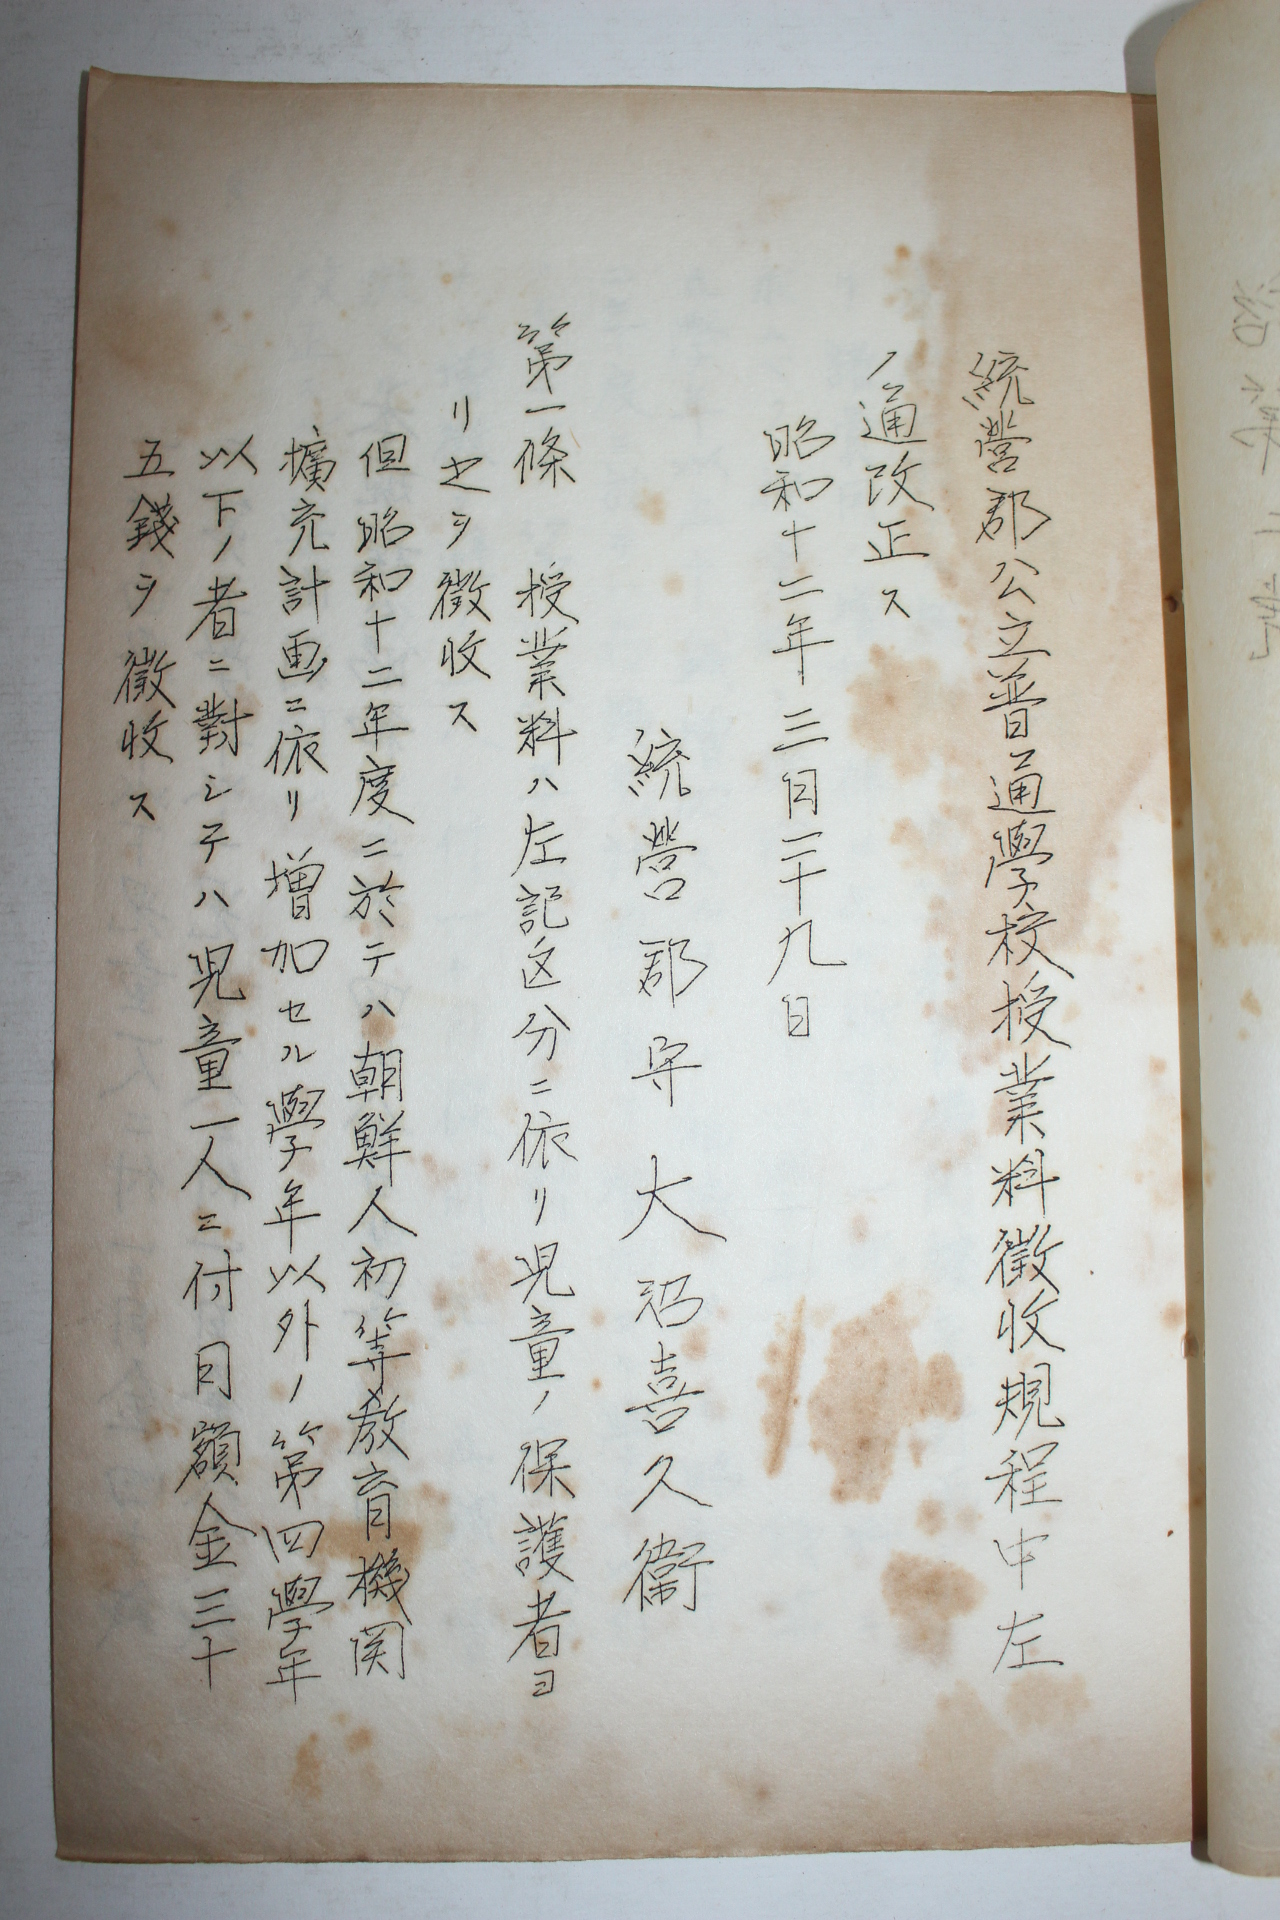 統營郡公立普通學校授業料徵收規程中左
ノ通改正ス
昭和十二年三月二十九日
統營郡守大沼喜久衞
第一條　授業料ハ左記区分ニ依リ児童ノ保護者ヨ
リ之ヲ徵收ス
但昭和十二年度ニ於テハ朝鮮人初等教育機関
擴充計画ニ依リ増加セル學年以外ノ第四學年
以下ノ者ニ對シテハ児童一人ニ付月額金三十
五錢ヲ徵收ス